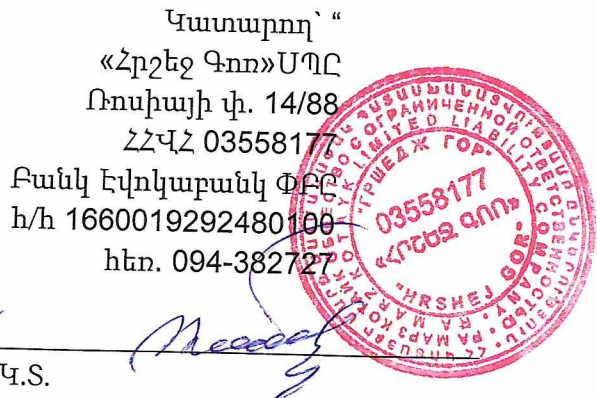 Կատարող՝ “
«Հրշեջ Գոռ»ՍՊԸ
Ռոսիայի փ. 14/88
ՀՎՀՀ 03558177
Բանկ Էվոկաբանկ ՓԲԸ
h/h 1660019292480100
հեռ. 094-382727
Կ.Տ.
ОГРАНИЧЕННОЙ ОТВЕТСТВЕННОСТЬЮ
LIMITED LIABILITY COMPANY
"ГРШЕДЖ ГОР"
03558177
«ՀՐՇԵՋ ԳՈՌ»
"HRSHEJ GOR"